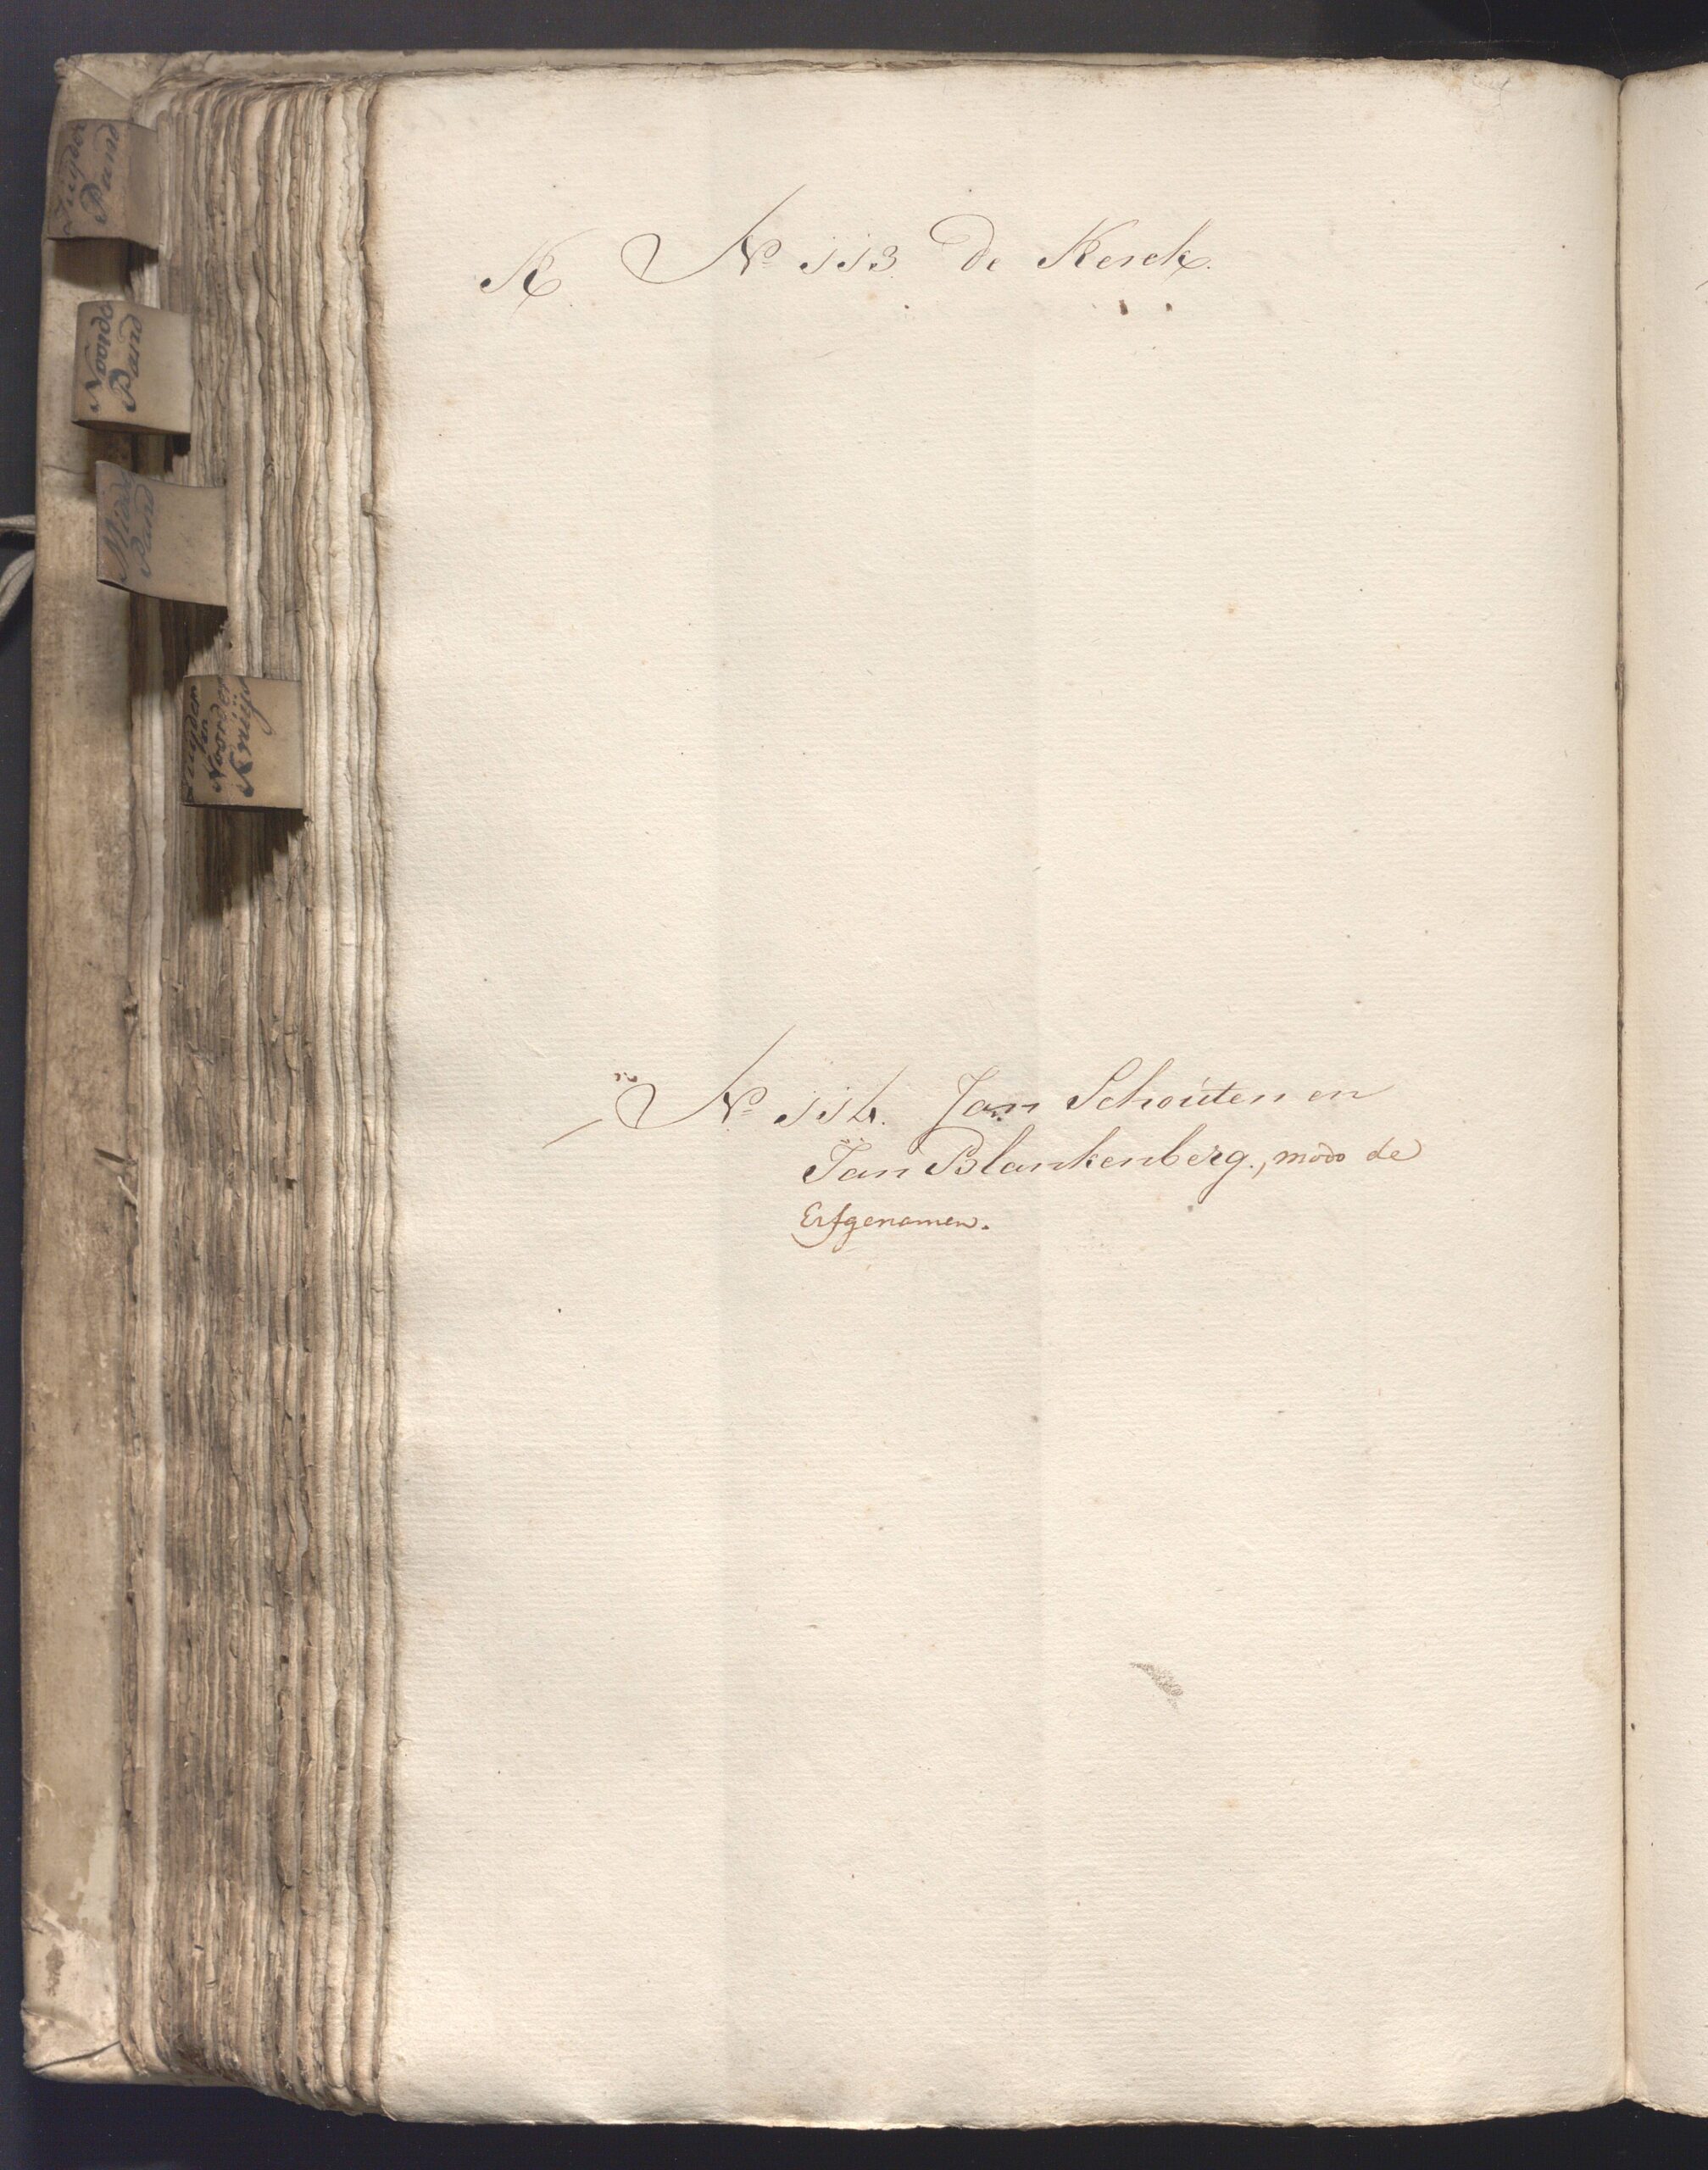 Zuyder
Pand
Noorder
Pand
Midde
Pand
Zuyder
en
Noorder
Kruijs
K. N° 113. De Kerck.
N° 114. Jan Schouten en
Jan Blankenberg., modo de
Erfgenamen.